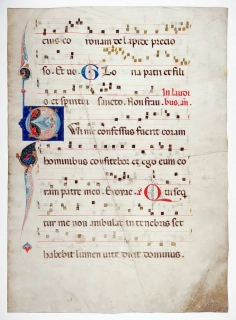 eius co ronam de lapide precio
so. Et vo. Glo na patri et fili
In laudi
o et spiritui sancto. Non frau. bus, añ.
Qui me confessus fuerit coram
hominibus confitebor et ego eum co
ram patre meo. Evovae. a. Qui seq
tur me non ambulat in tenebris set
habebit lumen vite dicit dominus.